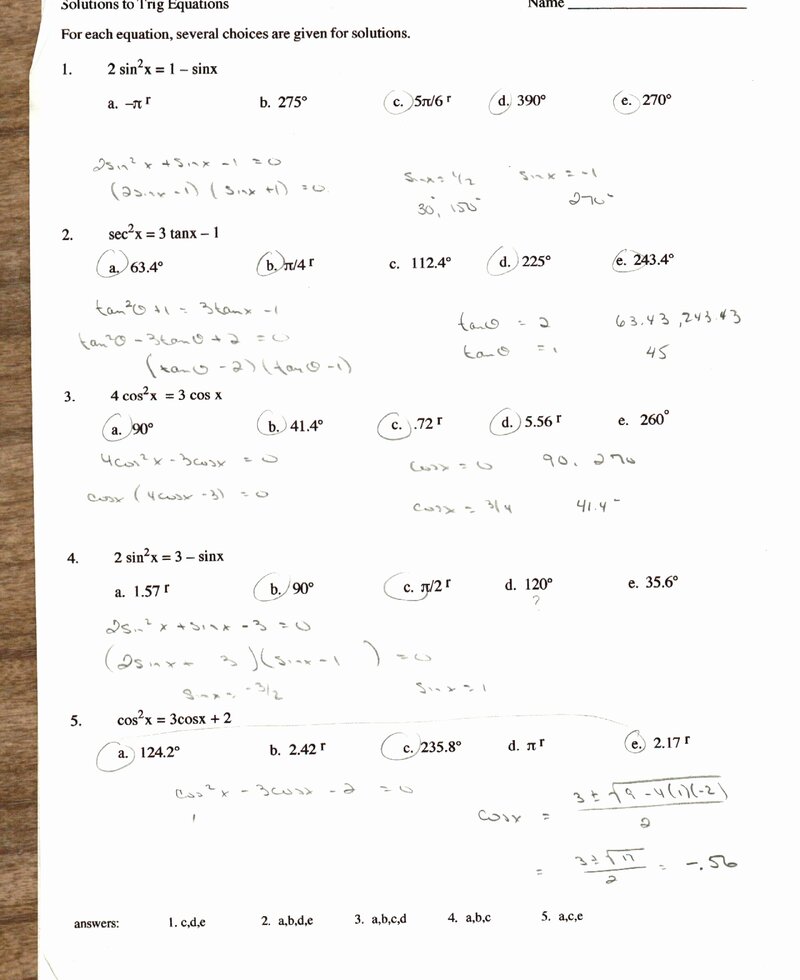 Solutions to Trig Equations Name
For each equation, several choices are given for solutions.
1. 2 sin²x = 1 – sinx
a. –π r b. 275° c. 5π/6 r d. 390° e. 270°
2sin²x + sinx - 1 = 0 sinx = 1/2 sinx = -1
(2sinx - 1)(sinx + 1) = 0 30°, 150° 270°
2. sec²x = 3 tanx – 1
a. 63.4° b. π/4 r c. 112.4° d. 225° e. 243.4°
tan²θ + 1 = 3tanx - 1 tanθ = 2 63.43, 243.43
tan²θ - 3tanθ + 2 = 0 tanθ = 1 45
(tanθ - 2)(tanθ - 1)
3. 4 cos²x = 3 cos x
a. 90° b. 41.4° c. .72 r d. 5.56 r e. 260°
4cos²x - 3cosx = 0 cosx = 0 90, 270
cosx (4cosx - 3) = 0 cosx = 3/4 41.4°
4. 2 sin²x = 3 – sinx
a. 1.57 r b. 90° c. π/2 r d. 120° e. 35.6°
?
2sin²x + sinx - 3 = 0
(2sinx + 3)(sinx - 1) = 0
sinx = -3/2 sinx = 1
5. cos²x = 3cosx + 2
a. 124.2° b. 2.42 r c. 235.8° d. π r e. 2.17 r
cos²x - 3cosx - 2 = 0 cosx = 3 ± √9 - 4(1)(-2) / 2
= 3 ± √17 / 2 = -.56
answers: 1. c,d,e 2. a,b,d,e 3. a,b,c,d 4. a,b,c 5. a,c,e